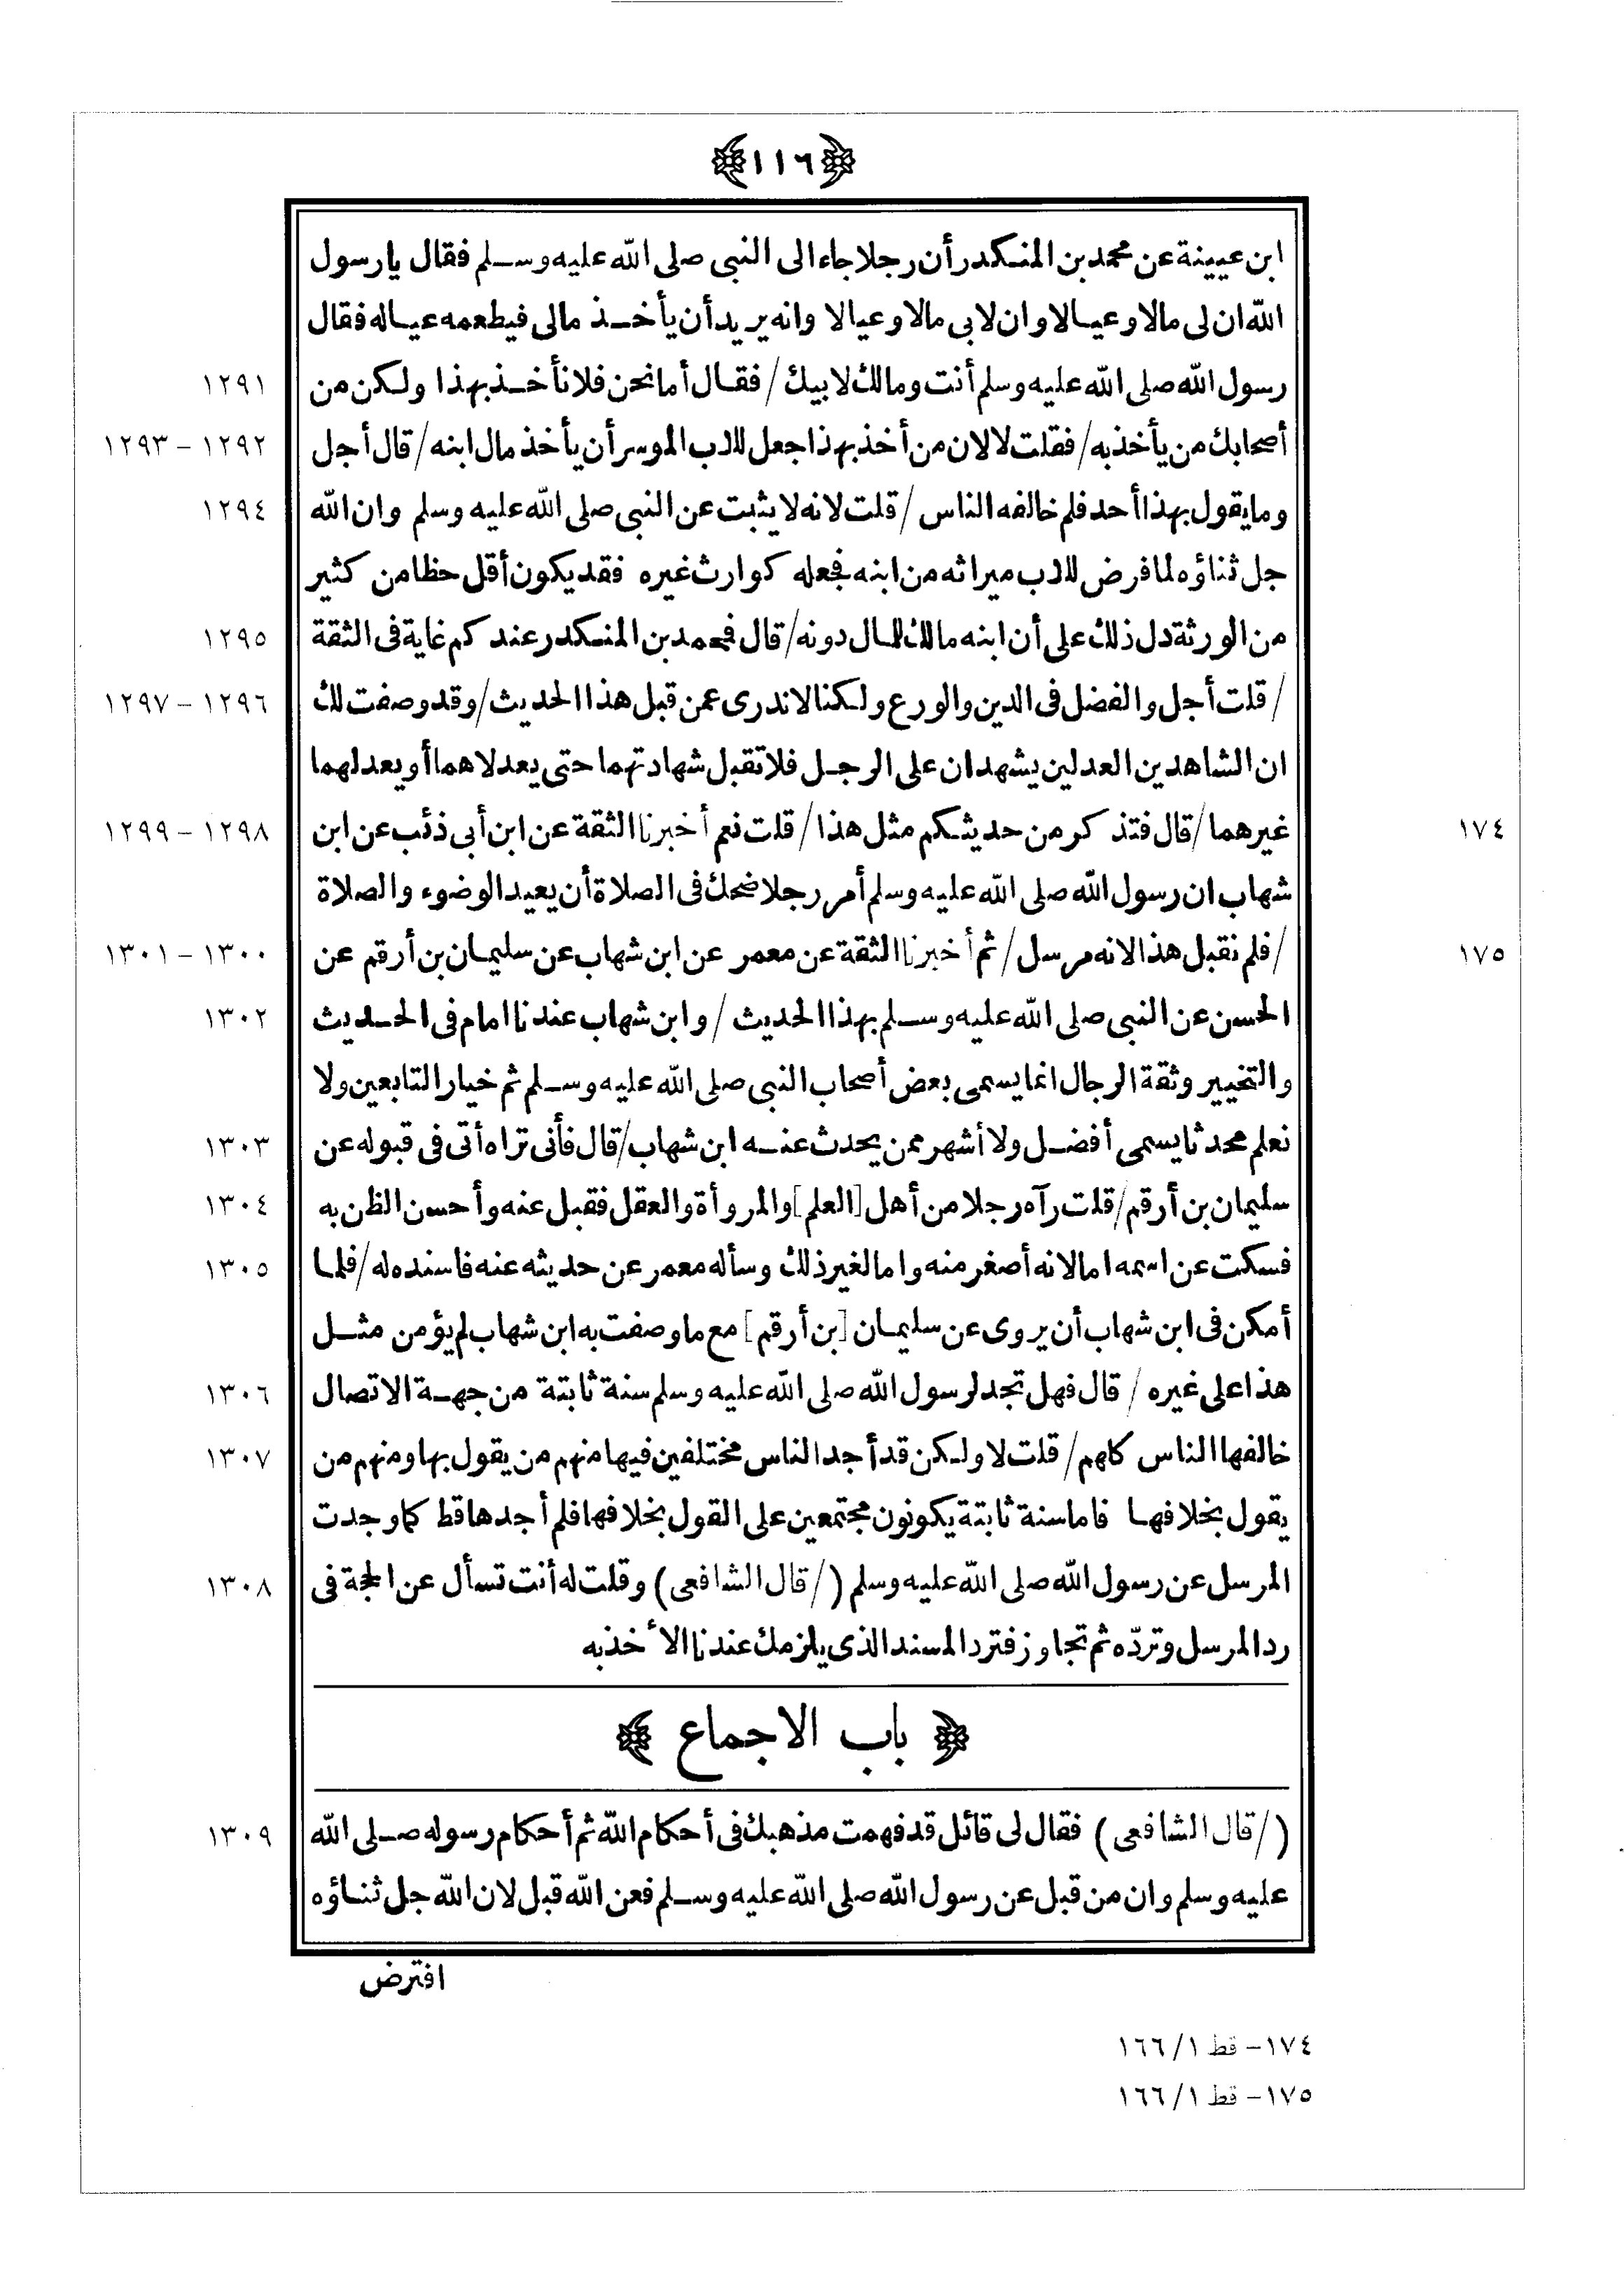 ١١٦
ابن عيينة عن محمد بن المنكدر أن رجلا جاء الى النبى صلى الله عليه وسلم فقال يا رسول
الله ان لى مالا وعيالا وان لابى مالا وعيالا وانه يريد أن يأخذ مالى فيطعمه عياله فقال
رسول الله صلى الله عليه وسلم أنت ومالك لابيك / فقال أما نحن فلا نأخذ بهذا ولكن من ١٢٩١
أصحابك من يأخذ به / فقلت لا لان من أخذ بهذا جعل للاب الموسر أن يأخذ مال ابنه / قال أجل ١٢٩٢ – ١٢٩٣
وما يقول بهذا أحد فلم خالفه الناس / قلت لانه لا يثبت عن النبى صلى الله عليه وسلم وان الله ١٢٩٤
جل ثناؤه لما فرض للاب ميراثه من ابنه فجعله كوارث غيره فقد يكون أقل حظا من كثير
من الورثة دل ذلك على أن ابنه مالك للمال دونه / قال فمحمد بن المنكدر عندكم غاية فى الثقة ١٢٩٥
/ قلت أجل والفضل فى الدين والورع ولكنا لا ندرى عمن قبل هذا الحديث / وقد وصفت لك ١٢٩٦ – ١٢٩٧
ان الشاهدين العدلين يشهدان على الرجل فلا تقبل شهادتهما حتى يعدلاهما أو يعدلهما
١٧٤ غيرهما / قال فتذكر من حديثكم مثل هذا / قلت نعم أخبرنا الثقة عن ابن أبى ذئب عن ابن ١٢٩٨ – ١٢٩٩
شهاب ان رسول الله صلى الله عليه وسلم أمر رجلا ضحك فى الصلاة أن يعيد الوضوء والصلاة
١٧٥ / فلم نقبل هذا لانه مرسل / ثم أخبرنا الثقة عن معمر عن ابن شهاب عن سليمان بن أرقم عن ١٣٠٠ – ١٣٠١
الحسن عن النبى صلى الله عليه وسلم بهذا الحديث / وابن شهاب عندنا امام فى الحديث ١٣٠٢
والتخيير وثقة الرجال انما يسمى بعض أصحاب النبى صلى الله عليه وسلم ثم خيار التابعين ولا
نعلم محدثا يسمى أفضل ولا أشهر ممن يحدث عنه ابن شهاب / قال فأنى تراه أتى فى قبوله عن ١٣٠٣
سليمان بن أرقم / قلت رآه رجلا من أهل [العلم] والمروأة والعقل فقبل عنه وأحسن الظن به ١٣٠٤
فسكت عن اسمه اما لانه أصغر منه واما لغير ذلك وسأله معمر عن حديثه عنه فاسنده له / فلما ١٣٠٥
أمكن فى ابن شهاب أن يروى عن سليمان [بن أرقم] مع ما وصفت به ابن شهاب لم يؤمن مثل
هذا على غيره / قال فهل تجد لرسول الله صلى الله عليه وسلم سنة ثابتة من جهة الاتصال ١٣٠٦
خالفها الناس كلهم / قلت لا ولكن قد أجد الناس مختلفين فيها منهم من يقول بها ومنهم من ١٣٠٧
يقول بخلافها فاما سنة ثابتة يكونون مجتمعين على القول بخلافها فلم أجدها قط كما وجدت
المرسل عن رسول الله صلى الله عليه وسلم (/ قال الشافعى) وقلت له أنت تسأل عن الحجة فى ١٣٠٨
رد المرسل وتردّه ثم تجاوز فترد المسند الذى يلزمك عندنا الأخذ به
باب الاجماع
(/ قال الشافعى) فقال لى قائل قد فهمت مذهبك فى أحكام الله ثم أحكام رسوله صلى الله ١٣٠٩
عليه وسلم وان من قبل عن رسول الله صلى الله عليه وسلم فعن الله قبل لان الله جل ثناؤه
افترض
١٧٤– قط ١/ ١٦٦
١٧٥– قط ١/ ١٦٦